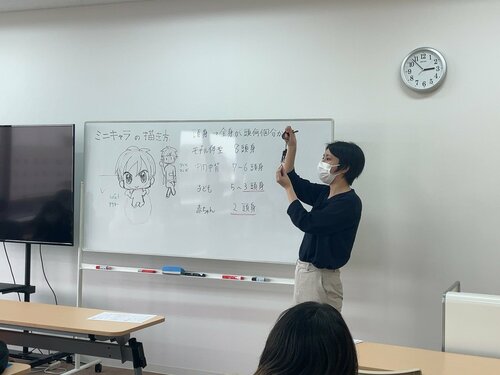 ミニキャラの描き方
頭身→全身が、頭何個分か
モデル体型 8頭身
7~6頭身
子ども 5~3頭身
赤ちゃん 2頭身